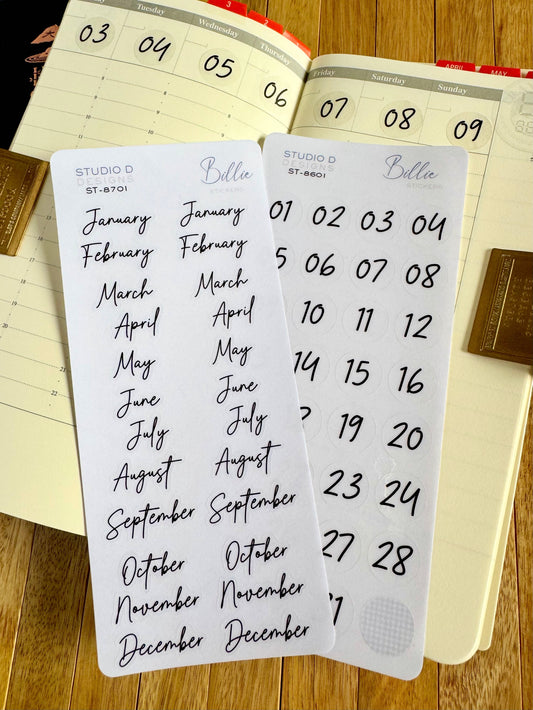 Tuesday
Wednesday
Thursday
Friday
Saturday
Sunday
3
APRIL
MAY
03 04 05 06 07 08 09
STUDIO D
DESIGNS
ST-8701
Billie
STICKERS
January January
February February
March March
April April
May May
June June
July July
August August
September September
October October
November November
December December
STUDIO D
DESIGNS
ST-8601
Billie
STICKERS
01 02 03 04
06 07 08
10 11 12
14 15 16
19 20
23 24
27 28